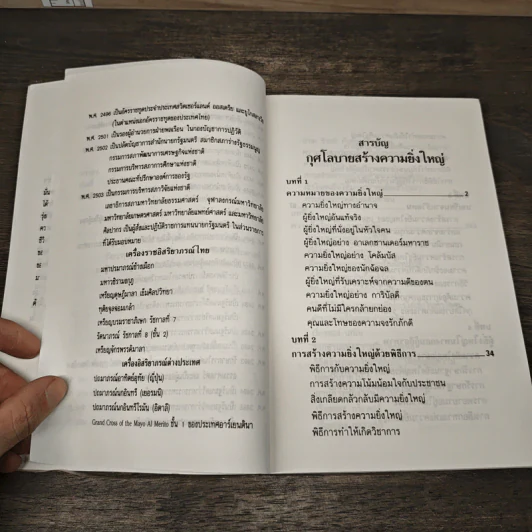 พ.ศ. 2498 เป็นอัครราชทูตประจำประเทศสวิตเซอร์แลนด์ ออสเตรีย และยูโกสลาเวีย
(ในตำแหน่งเอกอัครราชทูตของประเทศไทย)
พ.ศ. 2501 เป็นรองผู้อำนวยการฝ่ายพลเรือน ในกองบัญชาการปฏิวัติ
พ.ศ. 2502 เป็นปลัดบัญชาการสำนักนายกรัฐมนตรี สมาชิกสภาร่างรัฐธรรมนูญ
กรรมการสภาพัฒนาการเศรษฐกิจแห่งชาติ
กรรมการบริหารสภาการศึกษาแห่งชาติ
ประธานคณะที่ปรึกษาองค์การของรัฐ
พ.ศ. 2503 เป็นกรรมการบริหารสภาวิจัยแห่งชาติ
เลขาธิการสภามหาวิทยาลัยธรรมศาสตร์ จุฬาลงกรณ์มหาวิทยาลัย
มหาวิทยาลัยเกษตรศาสตร์ มหาวิทยาลัยแพทย์ศาสตร์ และมหาวิทยาลัย
ศิลปากร เป็นผู้สั่งและปฏิบัติราชการแทนนายกรัฐมนตรี ในส่วนราชการ
ที่ได้รับมอบหมาย
เครื่องราชอิสริยาภรณ์ไทย
มหาปรมาภรณ์ช้างเผือก
มหาวชิรมงกุฎ
เหรียญดุษฎีมาลา เข็มศิลปวิทยา
ทุติยจุลจอมเกล้า
เหรียญบรมราชาภิเษก รัชกาลที่ 7
รัตนาภรณ์ รัชกาลที่ 8 (ชั้น 2)
เหรียญจักรพรรดิมาลา
เครื่องอิสริยาภรณ์ต่างประเทศ
ปถมาภรณ์อาทิตย์อุทัย (ญี่ปุ่น)
ปถมาภรณ์นกอินทรี (เยอรมนี)
ปถมาภรณ์นกอินทรีโรมัน (อิตาลี)
Grand Cross of the Mayo Al Merito ชั้น 1 ของประเทศอาร์เยนตินา
สารบัญ
กุศโลบายสร้างความยิ่งใหญ่
บทที่ 1
ความหมายของความยิ่งใหญ่ 3
ความยิ่งใหญ่ทางอำนาจ
ผู้ยิ่งใหญ่อันแท้จริง
ผู้ยิ่งใหญ่ที่นั่งอยู่ในหัวใจคน
ผู้ยิ่งใหญ่อย่าง อาเลกซานเดอร์มหาราช
ความยิ่งใหญ่อย่าง โคลัมบัส
ความยิ่งใหญ่ของนักฉ้อฉล
ผู้ยิ่งใหญ่ที่รับเคราะห์จากความดีของตน
ความยิ่งใหญ่อย่าง การิบัลดี
คนดีที่ไม่มีใครกล้ายกย่อง
คุณและโทษของความจงรักภักดี
บทที่ 2
การสร้างความยิ่งใหญ่ด้วยพิธีการ 34
พิธีการกับความยิ่งใหญ่
การสร้างความโน้มน้อมใจกับประชาชน
สิ่งเกลียดกลัวกลับมีความยิ่งใหญ่
พิธีการสร้างความยิ่งใหญ่
พิธีการทำให้เกิดวิชาการ